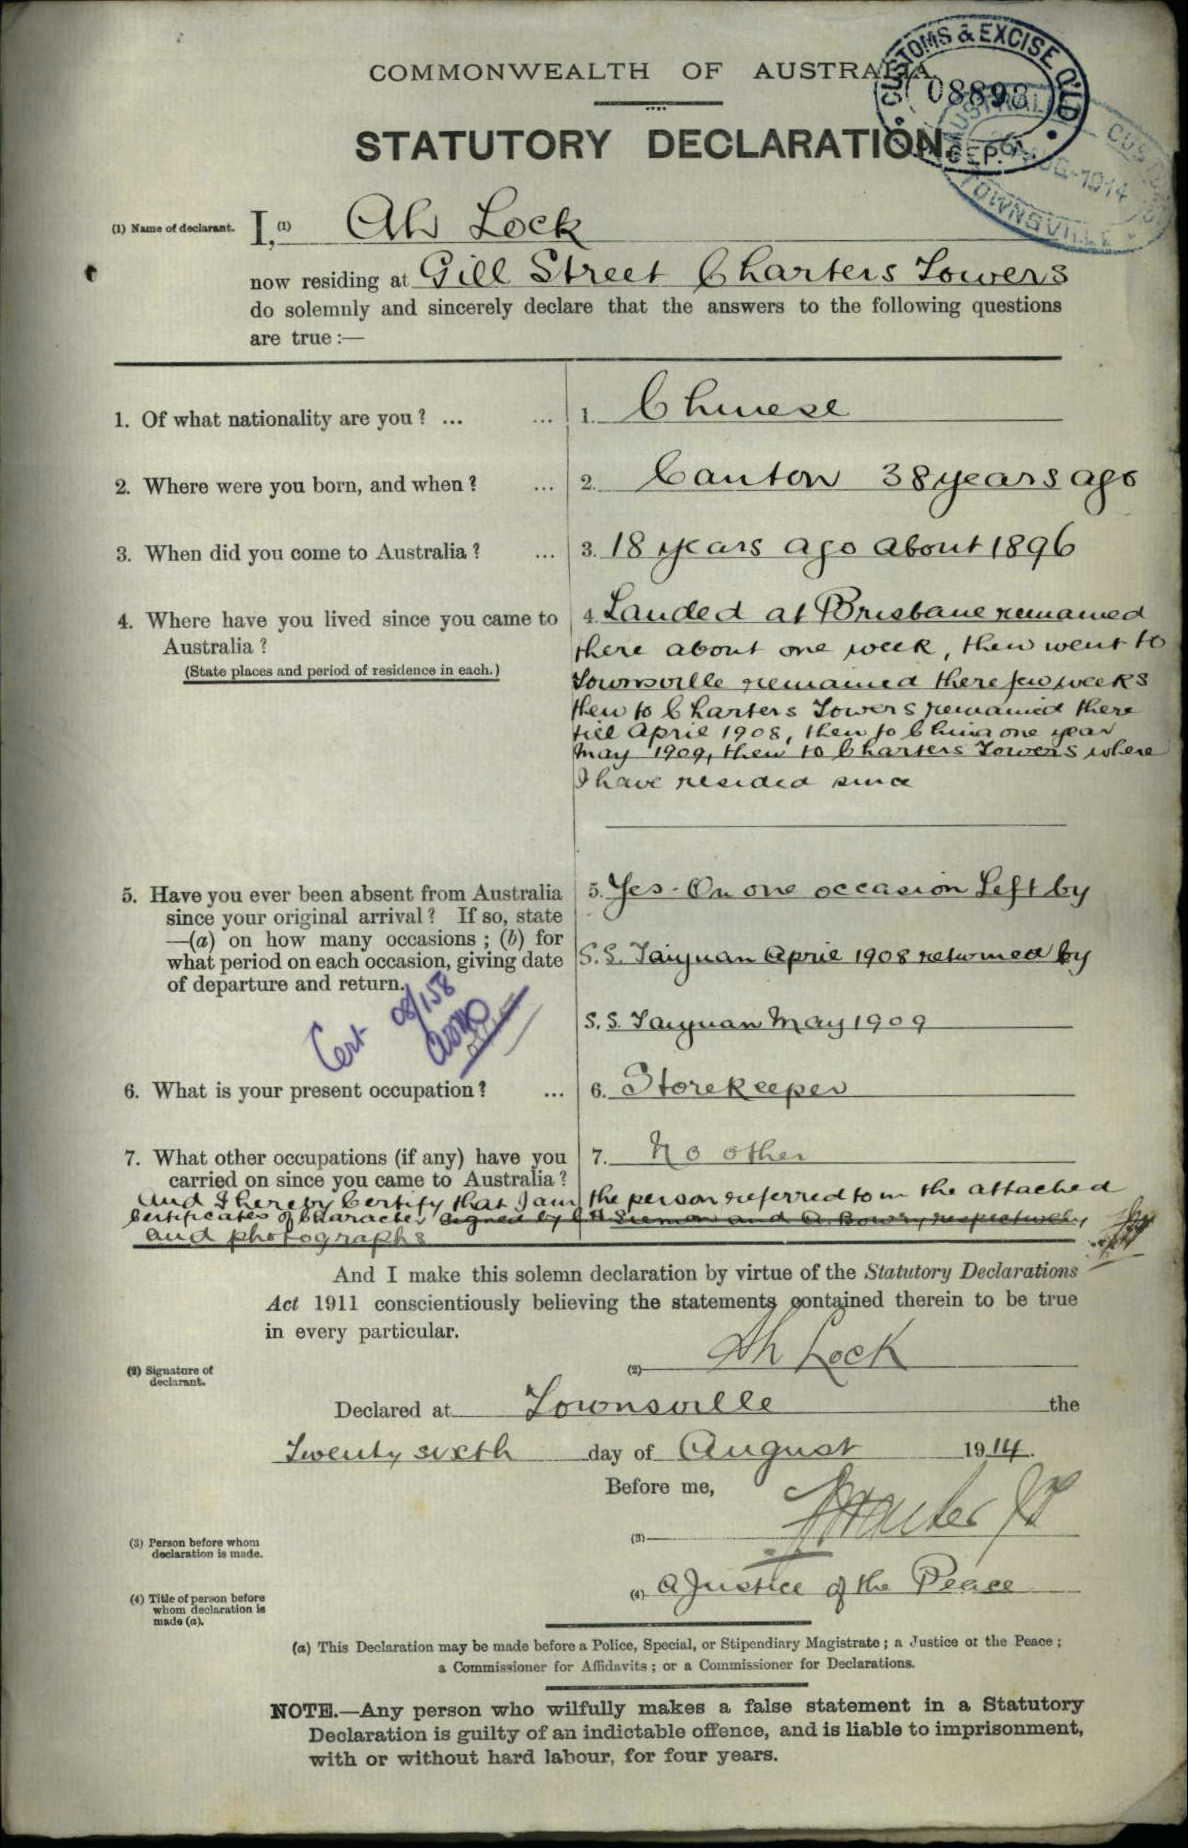 COMMONWEALTH OF AUSTRALIA.
CUSTOMS & EXCISE Q'LD
08893
SEP.
AUSTRALIA CUSTOMS
26 AUG 1914
TOWNSVILLE
STATUTORY DECLARATION.
(1) Name of declarant. I, (1) Ah Lock
now residing at Gill Street Charters Towers
do solemnly and sincerely declare that the answers to the following questions
are true :—
1. Of what nationality are you ? ... ... 1. Chinese
2. Where were you born, and when ? ... 2. Canton 38 years ago
3. When did you come to Australia ? ... 3. 18 years ago about 1896
4. Where have you lived since you came to
Australia ?
(State places and period of residence in each.)
4. Landed at Brisbane remained
there about one week, then went to
Townsville remained there few weeks
then to Charters Towers remained there
till April 1908, then to China one year
May 1909, then to Charters Towers where
I have resided since
5. Have you ever been absent from Australia
since your original arrival ? If so, state
—(a) on how many occasions ; (b) for
what period on each occasion, giving date
of departure and return.
5. Yes - On one occasion Left by
S.S. Taiyuan April 1908 returned by
S.S. Taiyuan May 1909
Cert 08/158
6. What is your present occupation ? ... 6. Storekeeper
7. What other occupations (if any) have you
carried on since you came to Australia ?
7. No other
and I hereby Certify that I am the person referred to in the attached
Certificates of Character signed by and respectively,
and photographs
And I make this solemn declaration by virtue of the Statutory Declarations
Act 1911 conscientiously believing the statements contained therein to be true
in every particular.
(2) Signature of
declarant.
(2) Ah Lock
Declared at Townsville the
Twenty sixth day of August 1914.
Before me,
(3) Person before whom
declaration is made.
(3) JP
(4) Title of person before
whom declaration is
made (a).
(4) A Justice of the Peace
(a) This Declaration may be made before a Police, Special, or Stipendiary Magistrate ; a Justice of the Peace ;
a Commissioner for Affidavits ; or a Commissioner for Declarations.
NOTE.—Any person who wilfully makes a false statement in a Statutory
Declaration is guilty of an indictable offence, and is liable to imprisonment,
with or without hard labour, for four years.